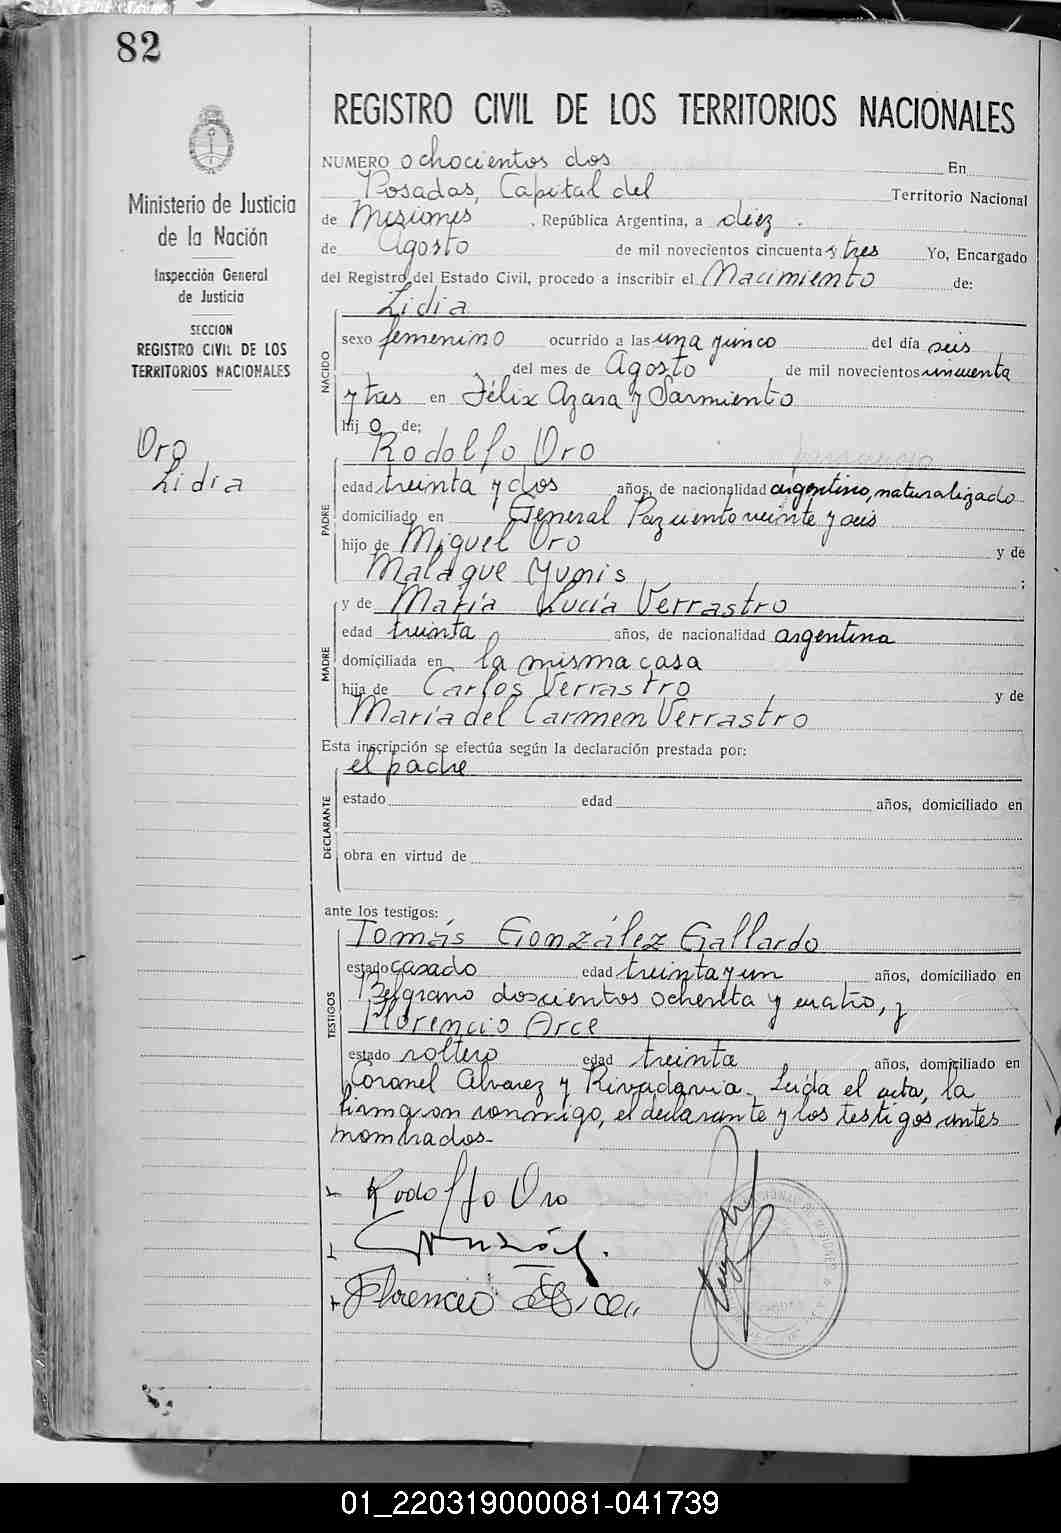 82
REGISTRO CIVIL DE LOS TERRITORIOS NACIONALES
Ministerio de Justicia
de la Nación
Inspección General
de Justicia
SECCION
REGISTRO CIVIL DE LOS
TERRITORIOS NACIONALES
Oro
Lidia
NUMERO ochocientos dos En
Posadas, Capital del Territorio Nacional
de Misiones, República Argentina, a diez
de Agosto de mil novecientos cincuenta y tres Yo, Encargado
del Registro del Estado Civil, procedo a inscribir el Nacimiento de:
NACIDO
Lidia
sexo femenino ocurrido a las una y cinco del día seis
del mes de Agosto de mil novecientos cincuenta
y tres en Félix Azara y Sarmiento
hij a de:
PADRE
Rodolfo Oro
edad treinta y dos años, de nacionalidad argentino, naturalizado
domiciliado en General Paz ciento veinte y seis
hijo de Miguel Oro y de
Malaque Yunis ;
MADRE
y de María Lucía Verrastro
edad treinta años, de nacionalidad argentina
domiciliada en la misma casa
hija de Carlos Verrastro y de
María del Carmen Verrastro
Esta inscripción se efectúa según la declaración prestada por:
DECLARANTE
el padre
estado edad años, domiciliado en
obra en virtud de
ante los testigos:
TESTIGOS
Tomás González Gallardo
estado casado edad treinta y un años, domiciliado en
Belgrano doscientos ochenta y cuatro, y
Florencio Arce
estado soltero edad treinta años, domiciliado en
Coronel Alvarez y Rivadavia. Leída el acta, la
firmaron conmigo, el declarante y los testigos antes
nombrados-
Rodolfo Oro
Florencio
01_220319000081-041739